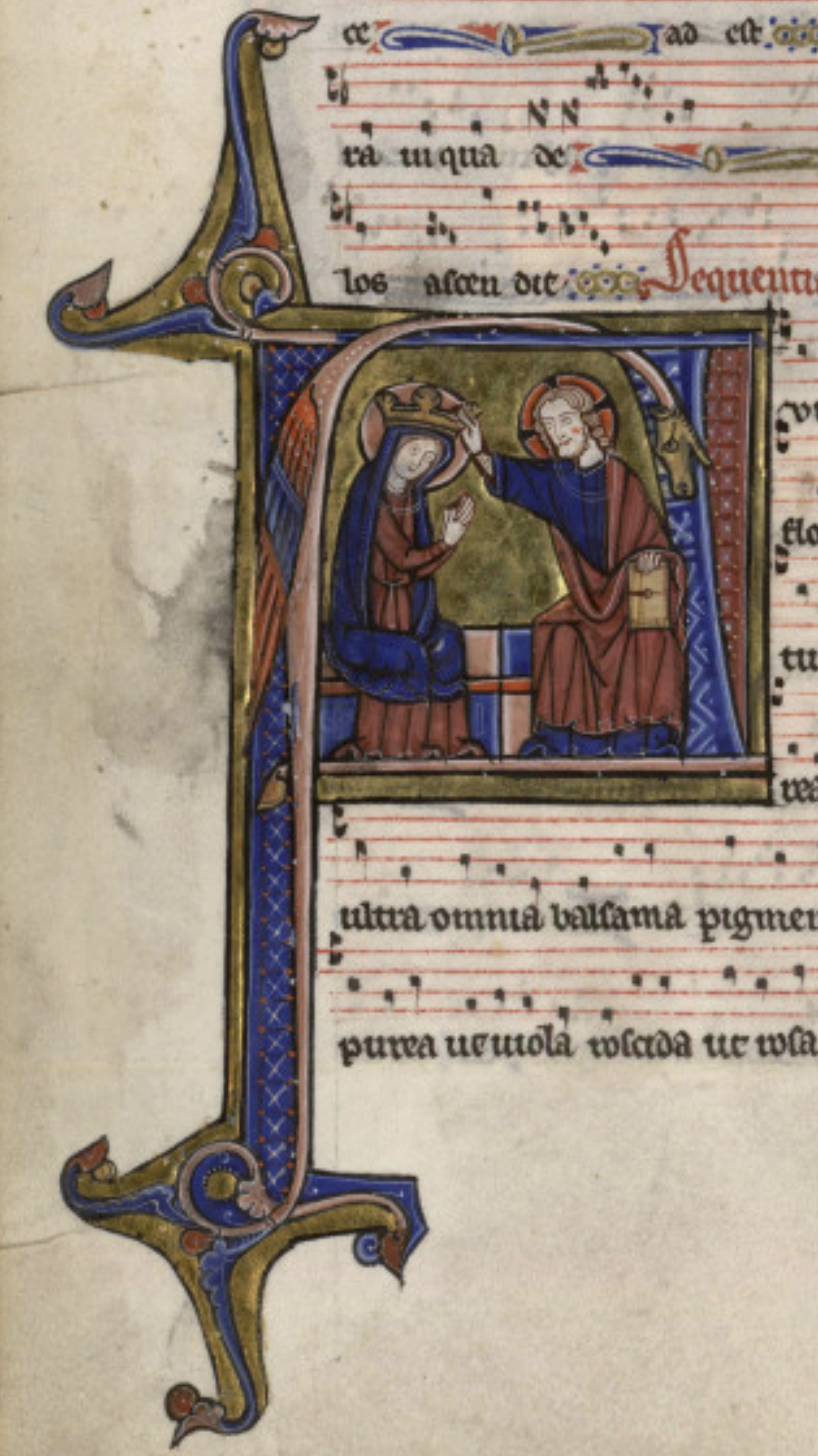 ce ad est
ra in qua de
los ascen dit Sequenti
flo
tu
rea
ultra omnia balsama pigmen
purea ut uiola roscida ut rosa